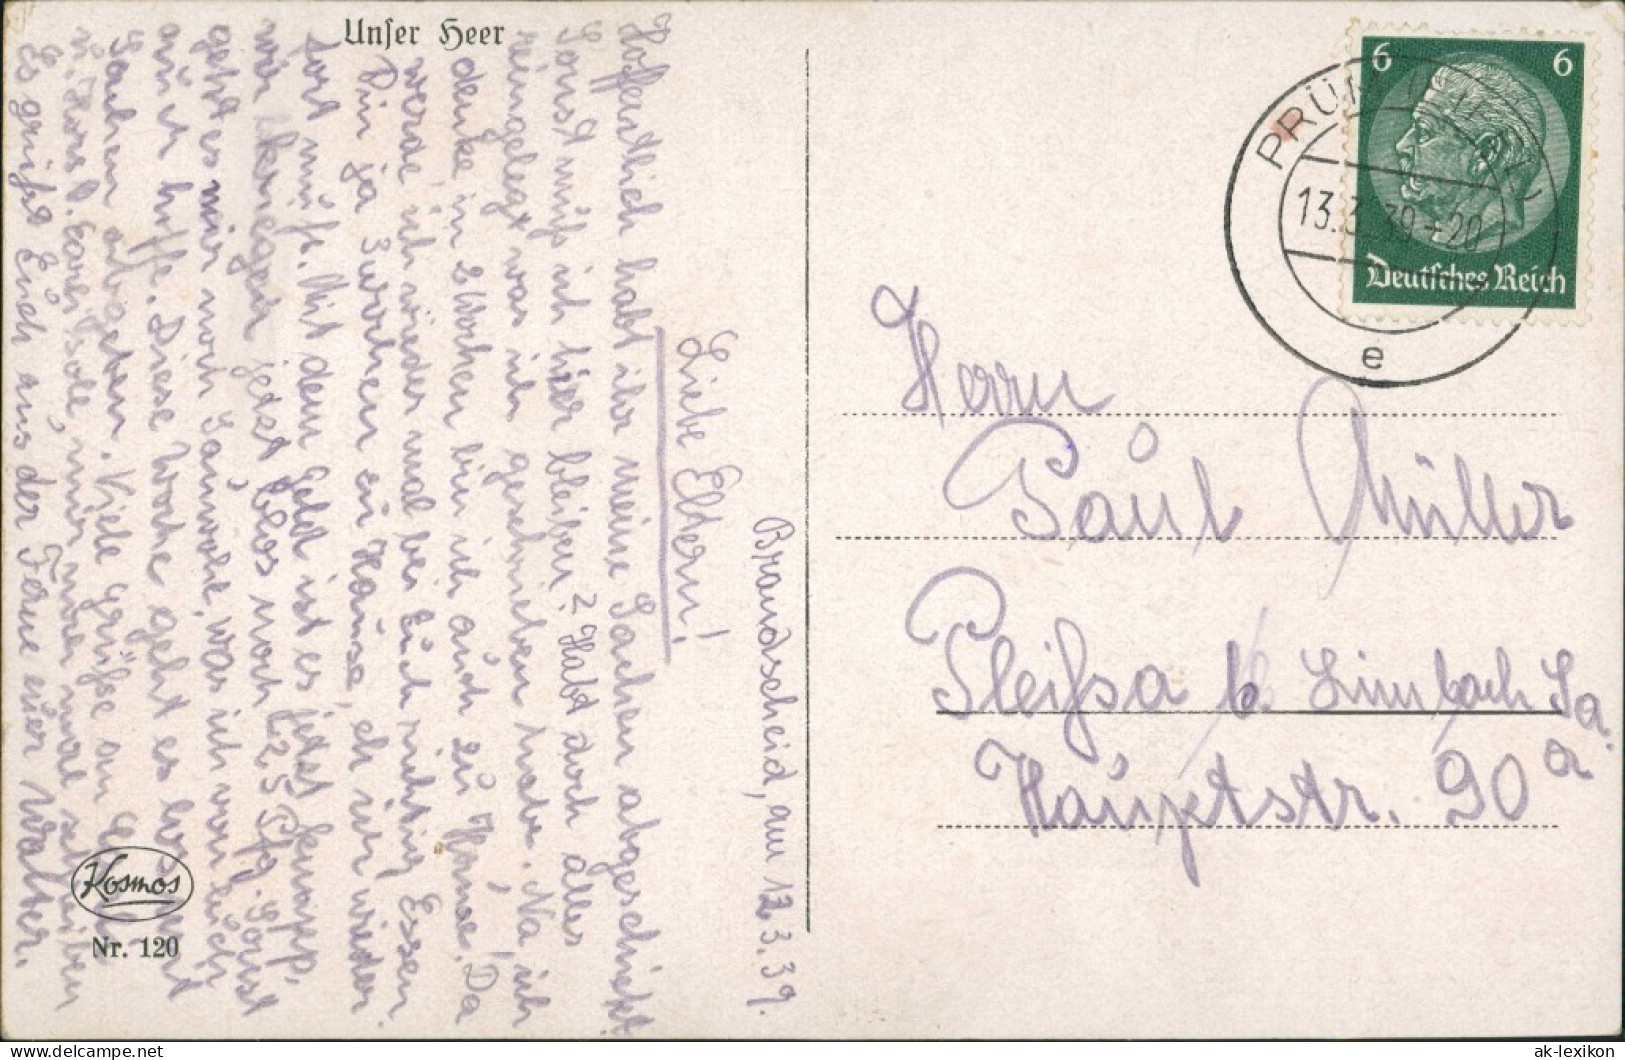 Unser Heer
Brandscheid, am 12.3.39.
Liebe Eltern!
Hoffentlich habt ihr meine Sachen abgeschickt.
Sonst müß ich hier bleiben. Habt doch alles
reingelegt was ich geschrieben habe. Na, ich
denke in 2 Wochen bin ich auch zu Hause. Da
werde ich wieder mal bei Euch richtig Essen.
Bin ja 3 Wochen zu Hause, eh ich wieder
fort müß. Mit dem Geld ist es jetzt knapp,
wir kriegen jetzt blos noch 25 Pfg. Sonst
geht es mir noch Sauwohl, was ich von Euch
auch hoffe. Diese Woche geht es
Sachen abgeben. Viele Grüße an
soll mir mal schreiben
Es grüßt Euch aus der Ferne euer Walter.
Kosmos
Nr. 120
6 6
Deutsches Reich
PRÜM
13.3.39-20
e
Herrn
Paul Müller
Pleißa b. Limbach Sa.
Hauptstr. 90a
ak-lexikon
the-best-collection.com